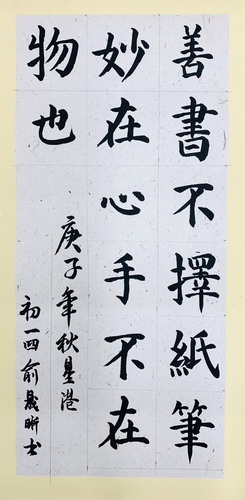 善書不擇紙筆
妙在心手不在
物也
庚子年秋星港
初一四俞晟昕书